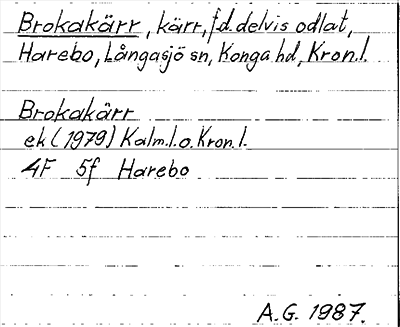 Brokakärr, kärr, f.d. delvis odlat,
Harebo, Långasjö sn, Konga hd, Kron.l.
Brokakärr
ek (1979) Kalm.l.o. Kron.l.
4F 5f Harebo
A.G. 1987.